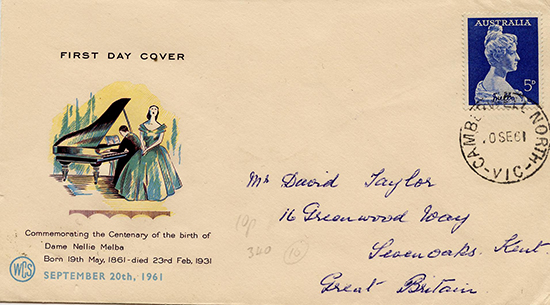 FIRST DAY COVER
AUSTRALIA
Melba
5D
CAMBERWELL NORTH
20 SE 61
VIC
Mr David Taylor
16 Greenwood Way
Sevenoaks. Kent.
Great Britain
10p
340
10
Commemorating the Centenary of the birth of
Dame Nellie Melba
Born 19th May, 1861-died 23rd Feb, 1931
WCS
SEPTEMBER 20th, 1961